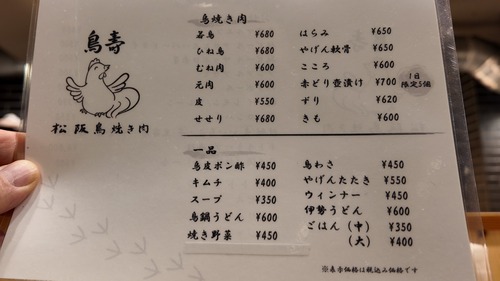 鳥壽
松阪鳥焼き肉
鳥焼き肉
若鳥 ¥680
ひね鳥 ¥680
むね肉 ¥600
元肉 ¥600
皮 ¥550
せせり ¥680
はらみ ¥650
やげん軟骨 ¥650
こころ ¥600
赤どり壺漬け ¥700
1日
限定5個
ずり ¥620
きも ¥600
一品
鳥皮ポン酢 ¥450
キムチ ¥400
スープ ¥350
鳥鍋うどん ¥600
焼き野菜 ¥450
鳥わさ ¥450
やげんたたき ¥550
ウィンナー ¥450
伊勢うどん ¥600
ごはん(中) ¥350
(大) ¥400
※表示価格は税込み価格です